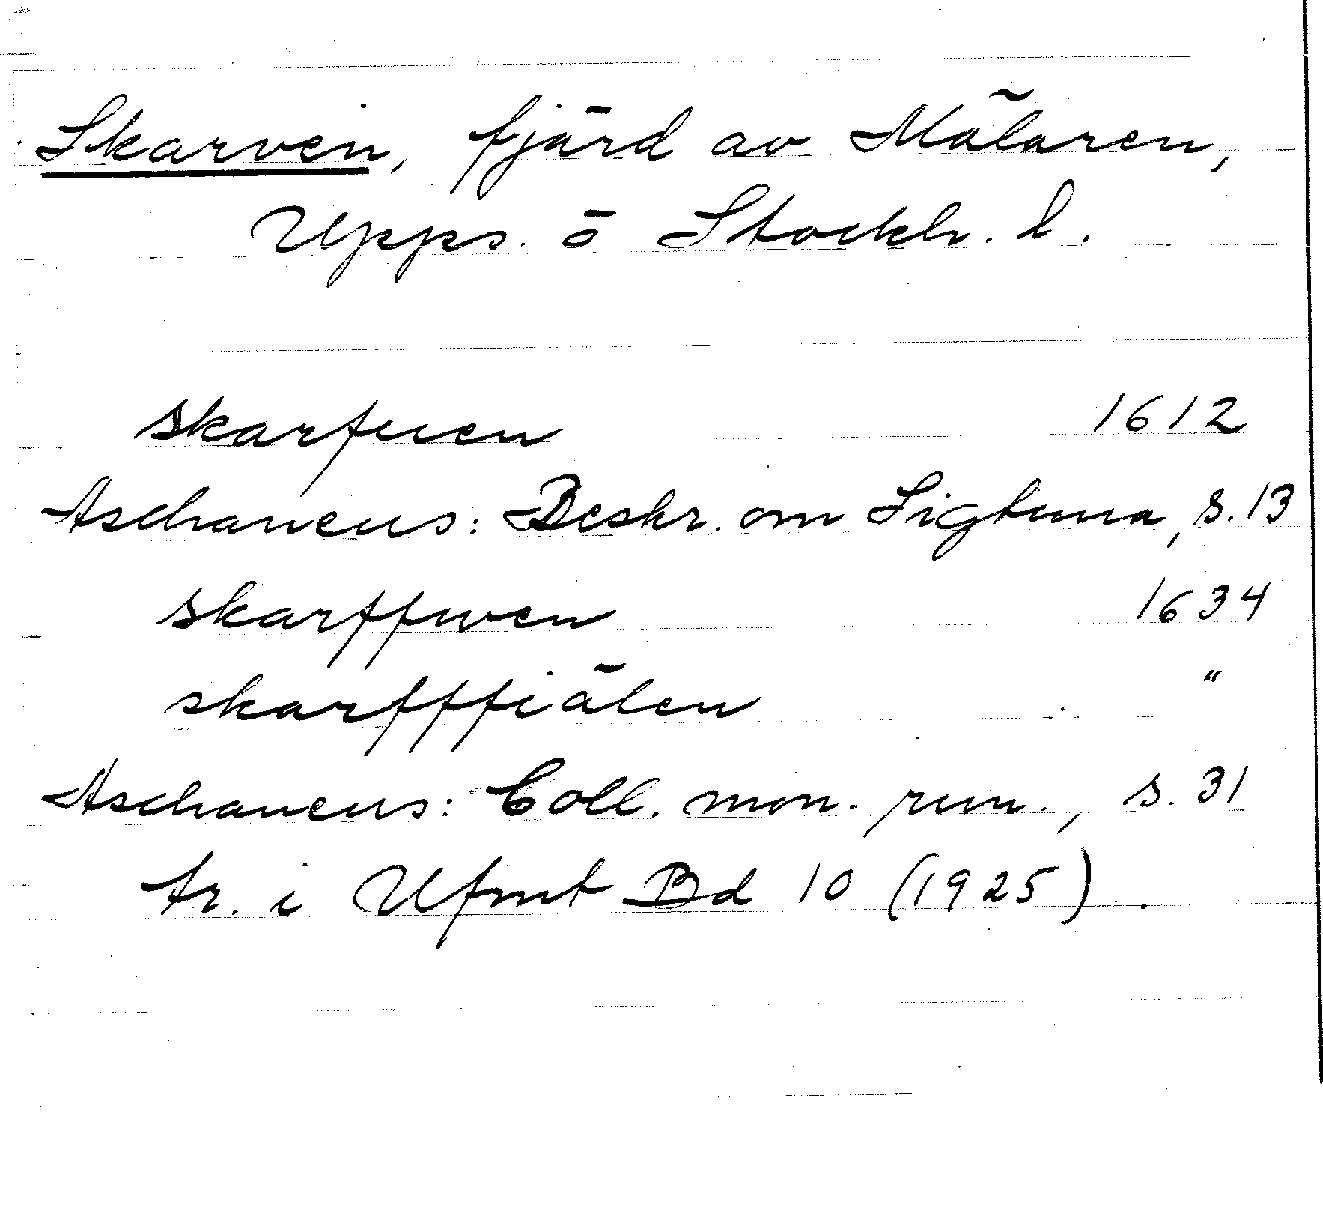 Skarven, fjärd av Mälaren,
Upps. o Stockh. l.
skarfuen 1612
Aschaneus: Beskr. om Sigtuna, s. 13
skarffwen 1634
skarfffiälen "
Aschaneus: Coll. mon. run., s. 31
tr. i Ufmt Bd 10 (1925).